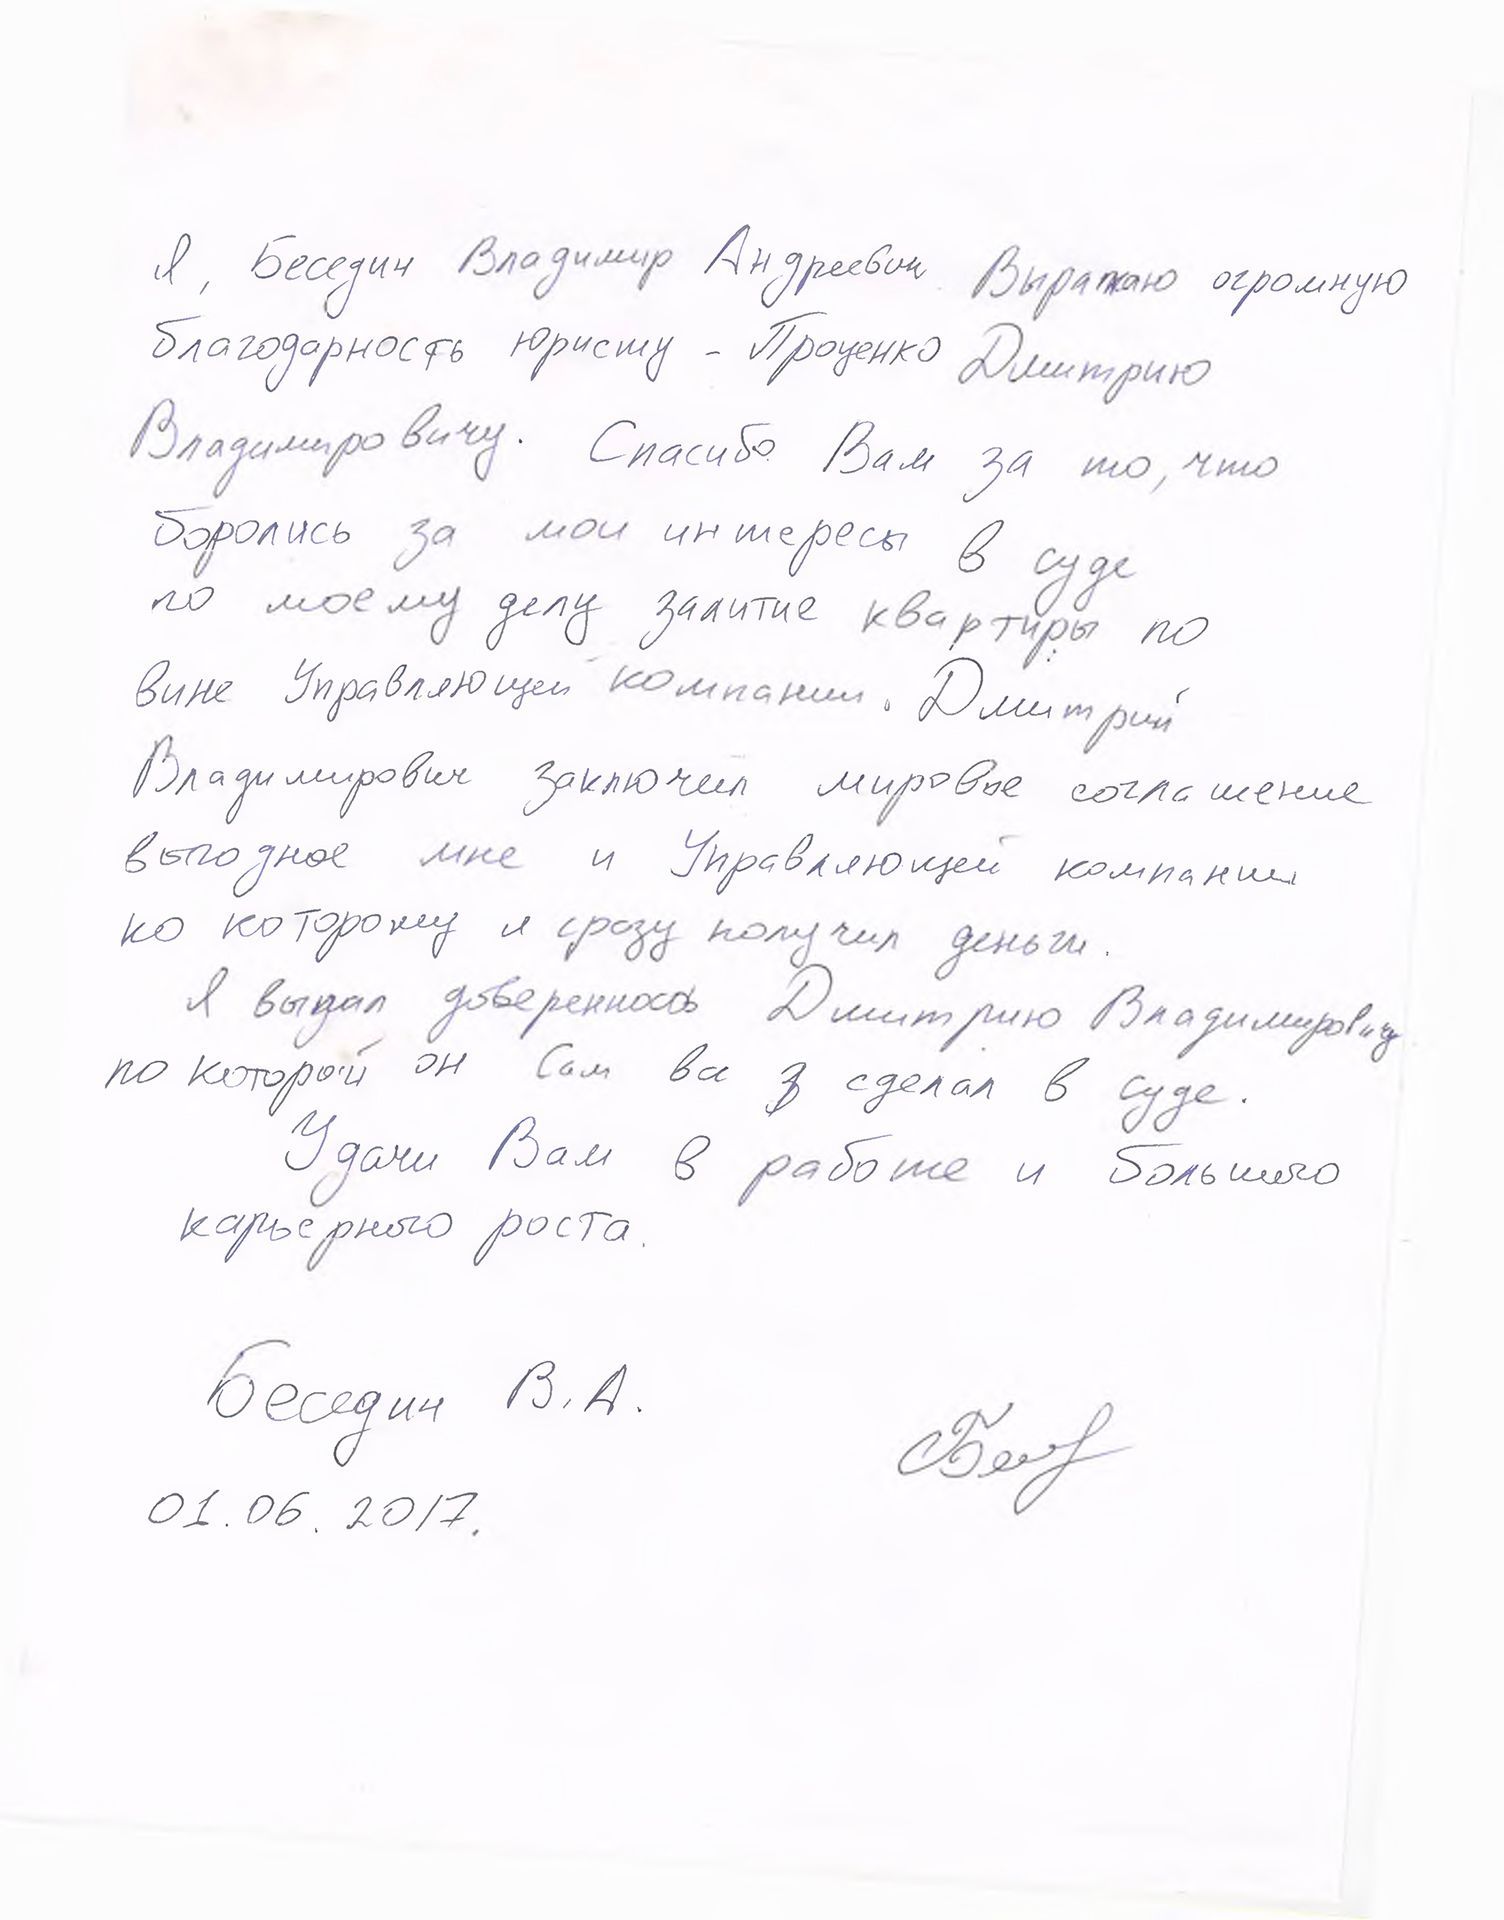 Я, Беседин Владимир Андреевич Выражаю огромную
благодарность юристу - Проценко Дмитрию
Владимировичу. Спасибо Вам за то, что
боролись за мои интересы в суде
по моему делу залитие квартиры по
вине Управляющей компании. Дмитрий
Владимирович заключил мировое соглашение
выгодное мне и Управляющей компании
по которому я сразу получил деньги.
Я выдал доверенность Дмитрию Владимировичу
по которой он Сам все сделал в суде.
Удачи Вам в работе и большого
карьерного роста.
Беседин В.А.
01.06.2017.